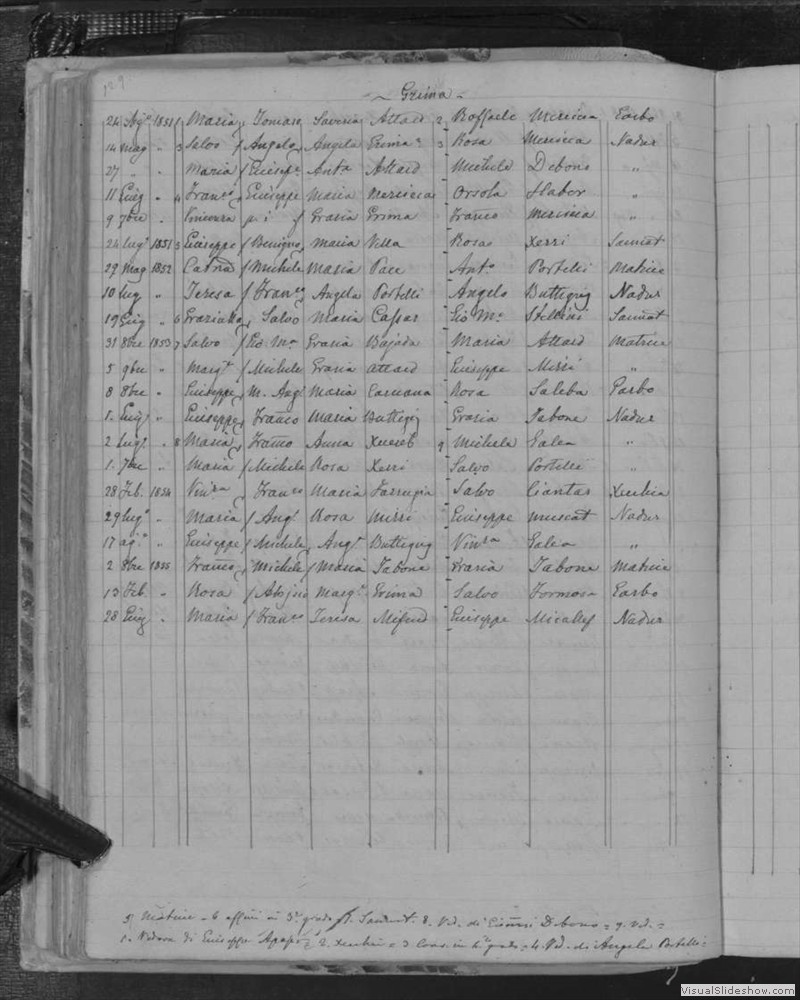 129
Grima
24 Ag.º 1851 1 Maria Tomaso Saveria Attard 2 Raffaele Mercieca Garbo
14 Mag " 3 Salvo Angelo Angela Grima 3 Rosa Mercieca Nadur
27 " " Maria Giusep.e Ant.a Attard Michele Debono "
11 Giug " 4 Fran.co Giuseppe Maria Mercieca Orsola "
9 7bre " Vincenza Grazia Grima Franco Mercieca "
24 lug.o 1851 3 Giuseppe Benigno Maria Vella Rosa Xerri Sannat
29 Mag 1852 Cat.na Michele Maria Pace Ant.o Portelli Matrice
10 lug " Teresa Fran.co Angela Portelli Angelo Buttigieg Nadur
19 Giug " 6 Salvo Maria Cassar Gio M.a Sannat
31 8bre 1853 7 Salvo Gio M.a Grazia Bajada Maria Attard Matrice
5 9bre " Marg.a Michele Grazia Attard Giuseppe "
8 8bre " Giuseppe M. Ang.o Maria Caruana Rosa Saliba Garbo
1. Giug " Giuseppe Franco Maria Buttigieg Grazia Tabone Nadur
2 lugl. " 8 Maria Franco Anna Xuereb 9 Michele Galea "
1. 7bre " Maria Michele Rosa Xerri Salvo Portelli "
28 Feb. 1854 Vin.za Franco Maria Farrugia Salvo Ciantar Xeuchia
29 lug.o " Maria Ang.o Rosa Giuseppe Muscat Nadur
17 ag.o " Giuseppe Michele Ang.a Buttigieg Vin.za Galea "
2 8bre 1855 Franco Michele Maria Tabone Grazia Tabone Matrice
13 Feb. " Rosa Alojsio Marg.a Grima Salvo Formosa Garbo
28 Giug " Maria Fran.co Teresa Mifsud Giuseppe Micallef Nadur
5 Matrice - 6 affini in 3º grado 7. Sannat. 8. Vd. di Debono = 9. Vd. =
1. Vedova di Giuseppe 2. Xeuchia = 3 Cons. in 4º grado = 4. Vd. di Angela Portelli =
VisualSlideshow.com